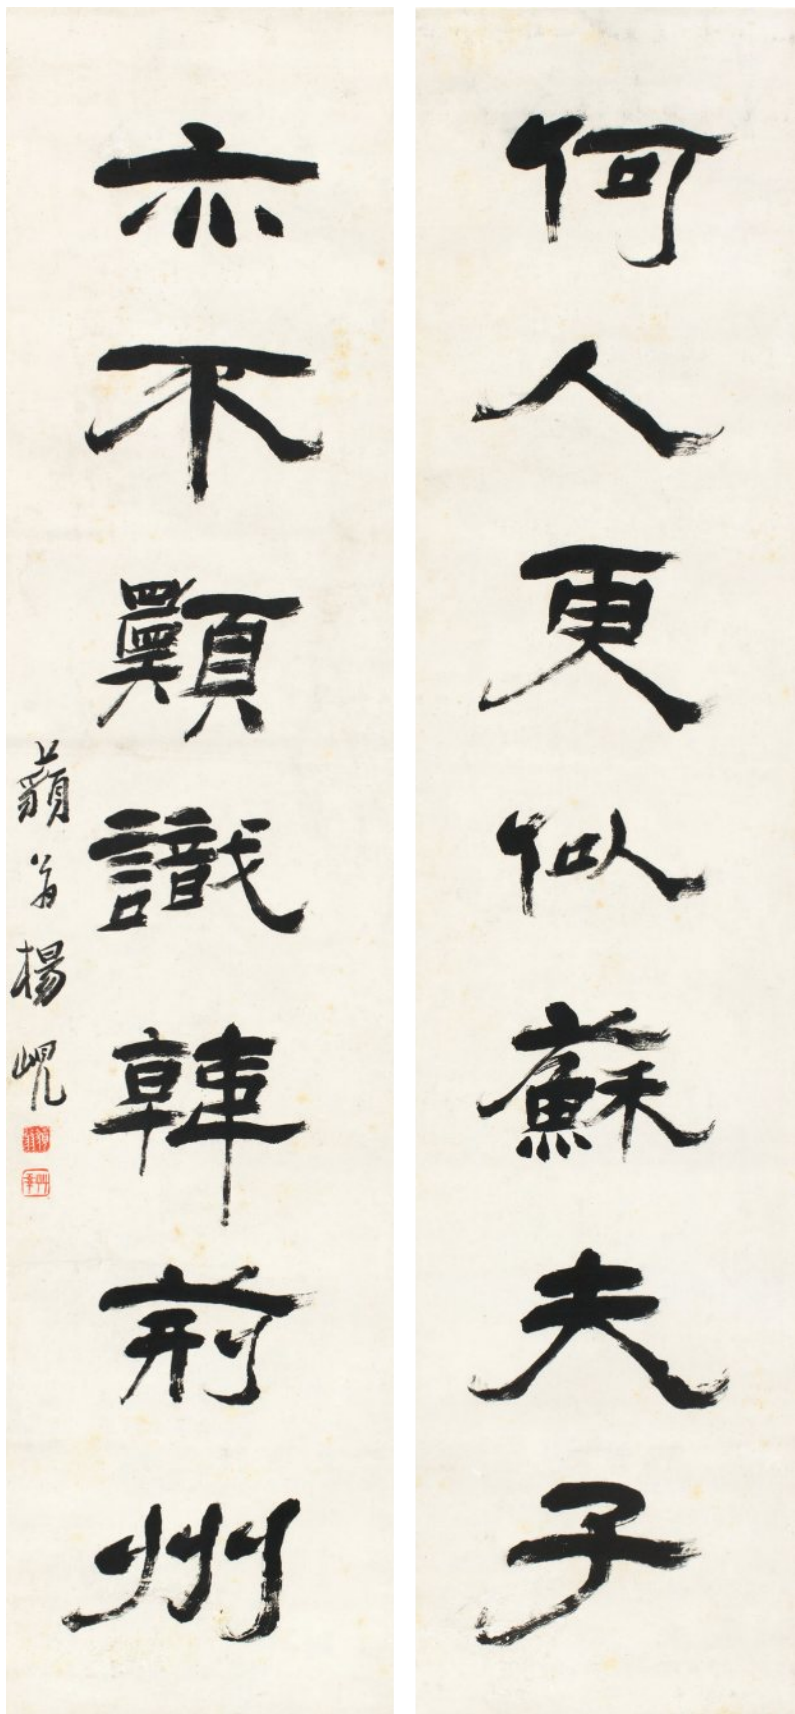 何人更似蘇夫子
亦不願識韓荊州
藐翁楊峴